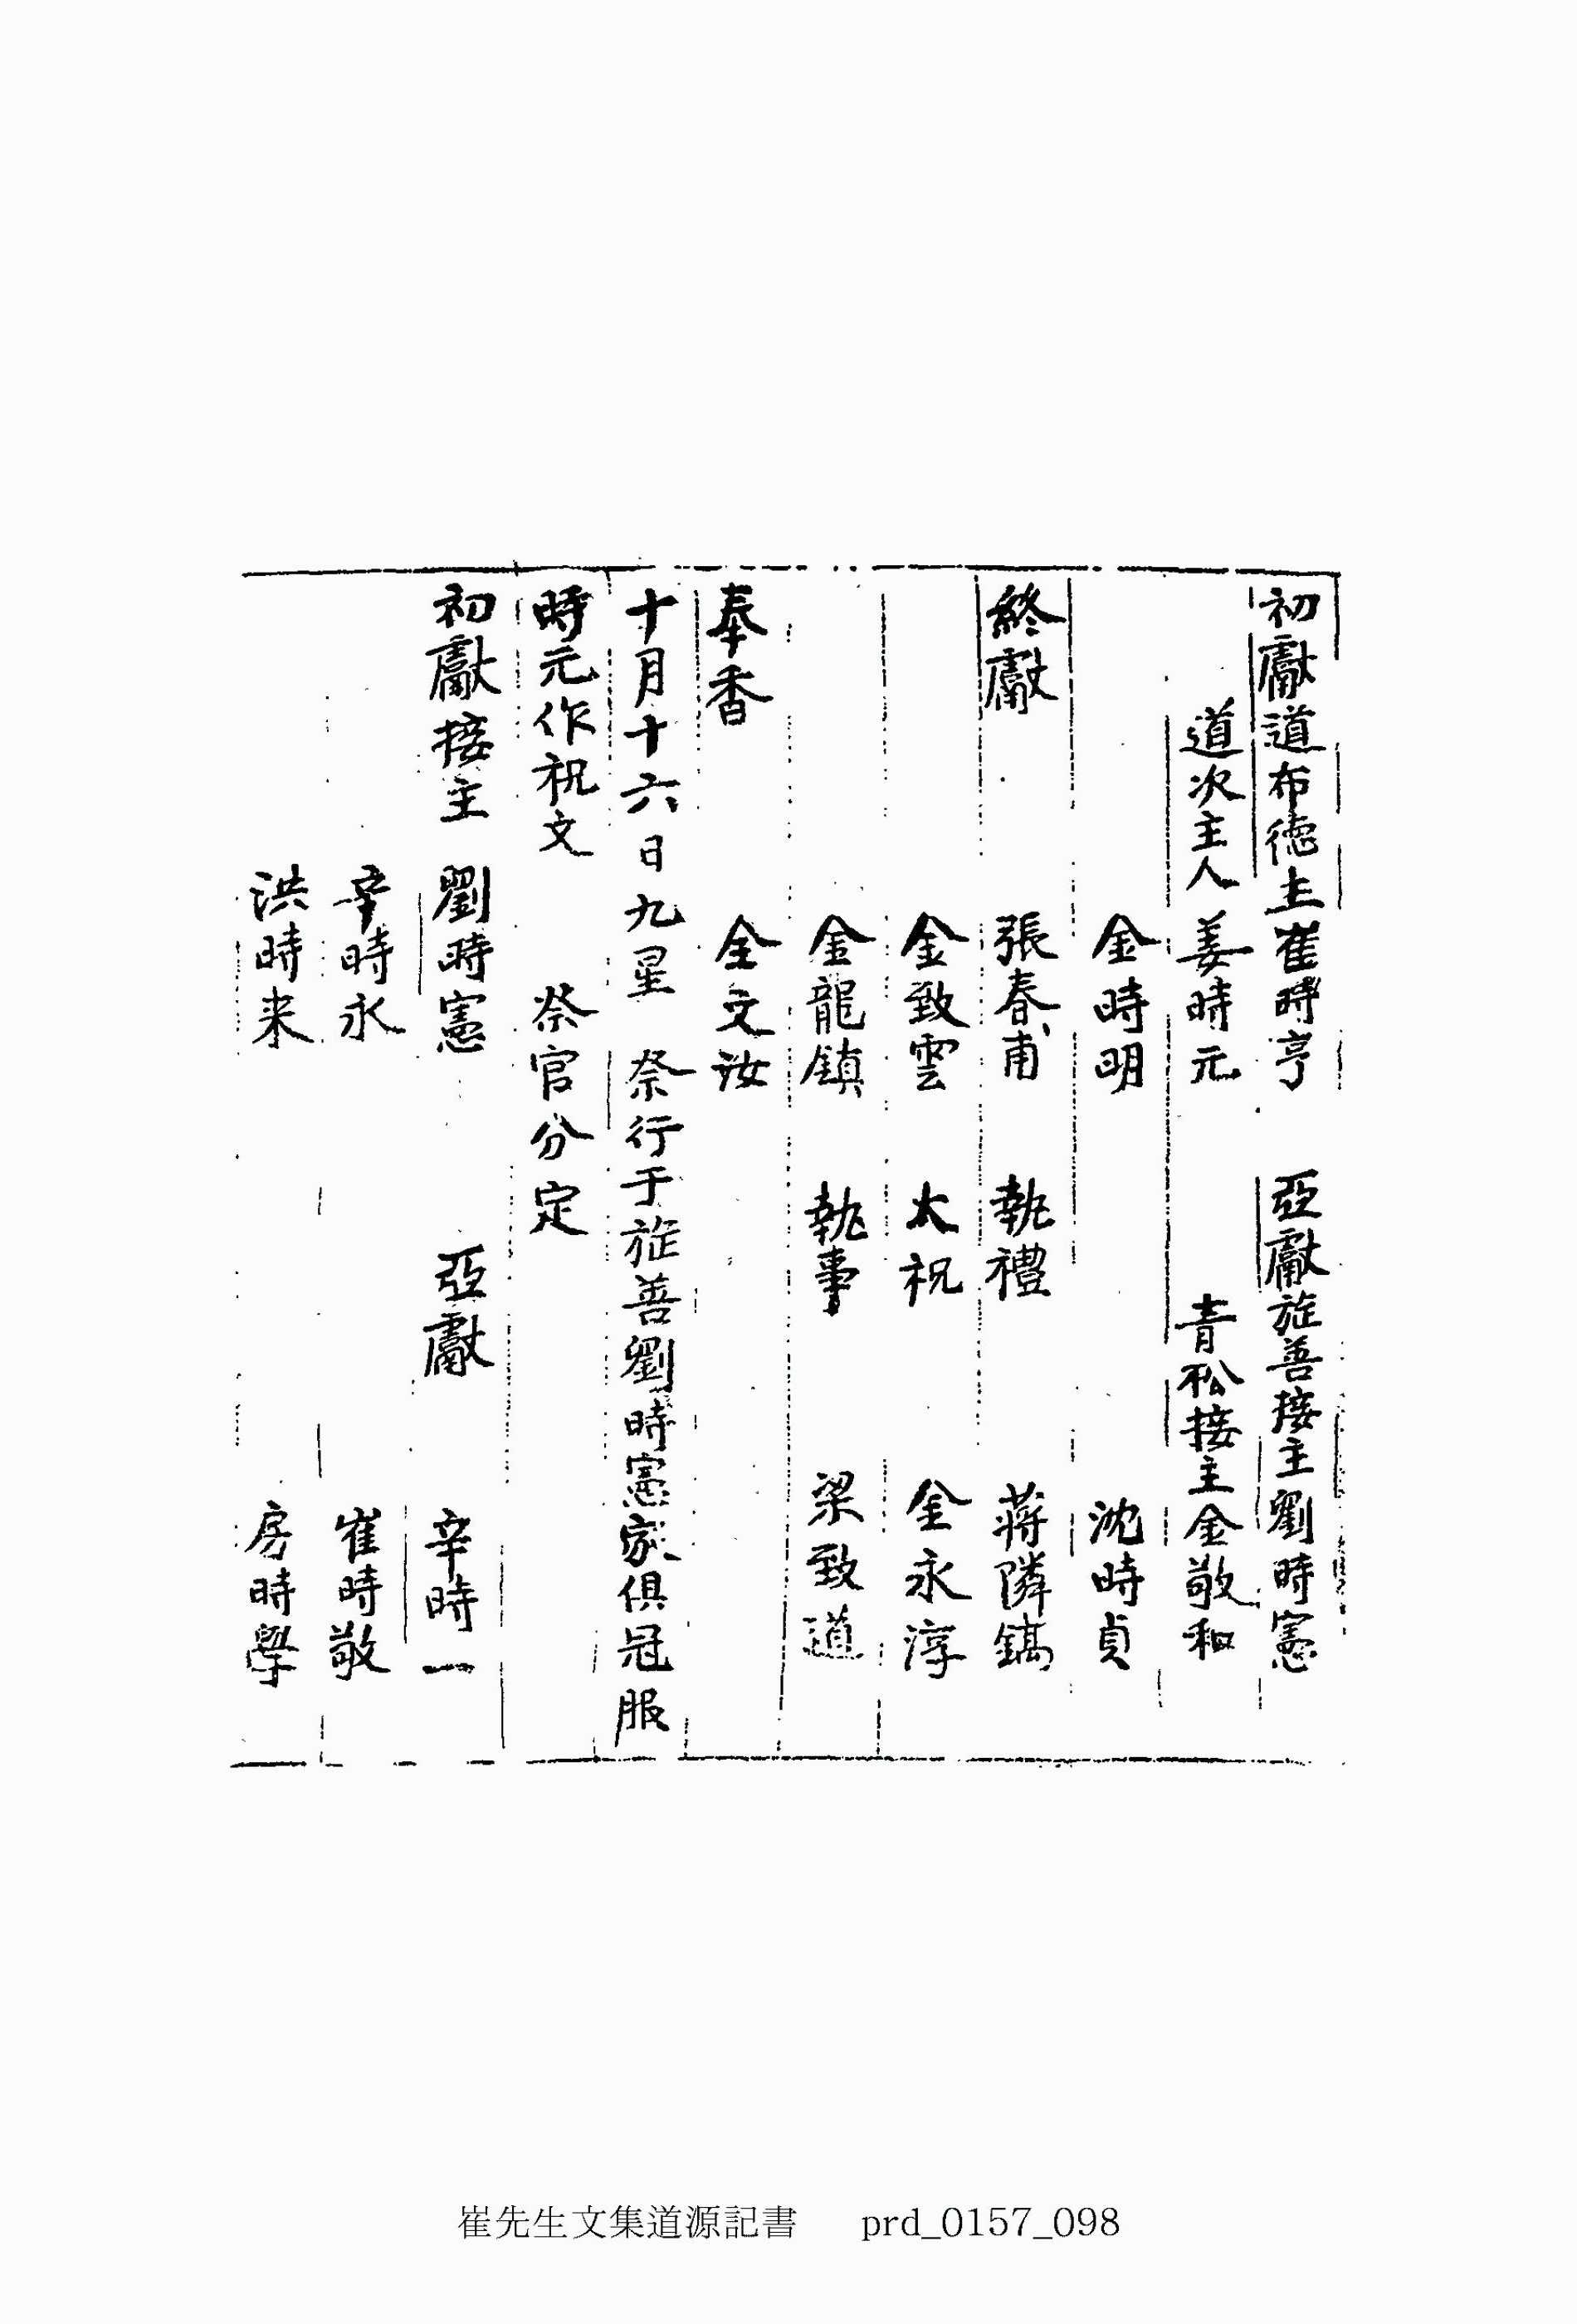 初獻道布德主崔時亨 亞獻旌善接主劉時憲
道次主人姜時元 青松接主金敬和
金時明 沈時貞
終獻 張春甫 執禮 蔣隣鎬
金致雲 大祝 金永淳
金龍鎮 執事 梁致道
奉香 全文汝
十月十六日九星 祭行于旌善劉時憲家俱冠服
時元作祝文 祭官分定
初獻接主 劉時憲 亞獻 辛時一
辛時永 崔時敬
洪時来 房時學
崔先生文集道源記書 prd_0157_098